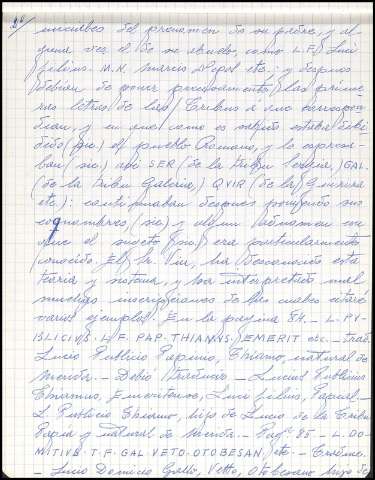 iniciales del prenomen de su padre, y al
guna vez el de su abuelo, como L.F. Luci
filius. M.N. Marcii Nepos etc. y despues
debian de poner precisamente las prime
ras letras de las Tribus á que correspon
dian, y en que como es sabido estaba divi
dido (sic) el pueblo Romano, y lo expresa
ban (sic) asi SER (de la tribu Sergia), GAL
(de la tribu Galeria) QVIR (de la Quirina
etc.): continuaban despues poniendo sus
cognombres, (sic) y algun adnomen con
que el sujeto era particularmente
conocido. El Sr. Viu, ha desconocido esta
teoria y sistema, y ha interpretado mal
muchas inscripciones de las cuales citaré
varios ejemplos. En la pagina 84. - L. PV-
BLICIVS. L. F. PAP. THIAMVS. EMERIT etc. - trad.
Lucio Publicio Papino, Thiamo, natural de
Merida. - Debió traducir - Lucius Publicius
Thiamus, Emeritensis, Luci filius, Papiria. -
L. Publicio Thiamo, hijo de Lucio de la tribu
Papia y natural de Merida. - Pagª 85 - L. DO-
MITIVS. T. F. GAL VETO. OTOBESAN, etc. -
- Lucio Domicio Gallo, Vetto, Otobesano hijo de